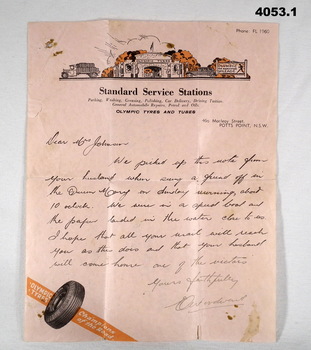 4053.1
Phone: FL 1160
Standard Service Stations
Parking, Washing, Greasing, Polishing, Car Delivery, Driving Tuition
General Automobile Repairs, Petrol and Oils.
OLYMPIC TYRES AND TUBES
Macleay Street
POTTS POINT, N.S.W.
Dear Mrs Johnson
We picked up this note from
your husband when seeing a friend off in
the Queen Mary on Sunday morning, about
10 o'clock. We were in a speed boat and
the paper landed in the water close to us
I hope that all your mails will reach
you as this does and that your husband
will come home one of the victors
Yours faithfully
OLYMPIC
TYRES
Champions
of the Road